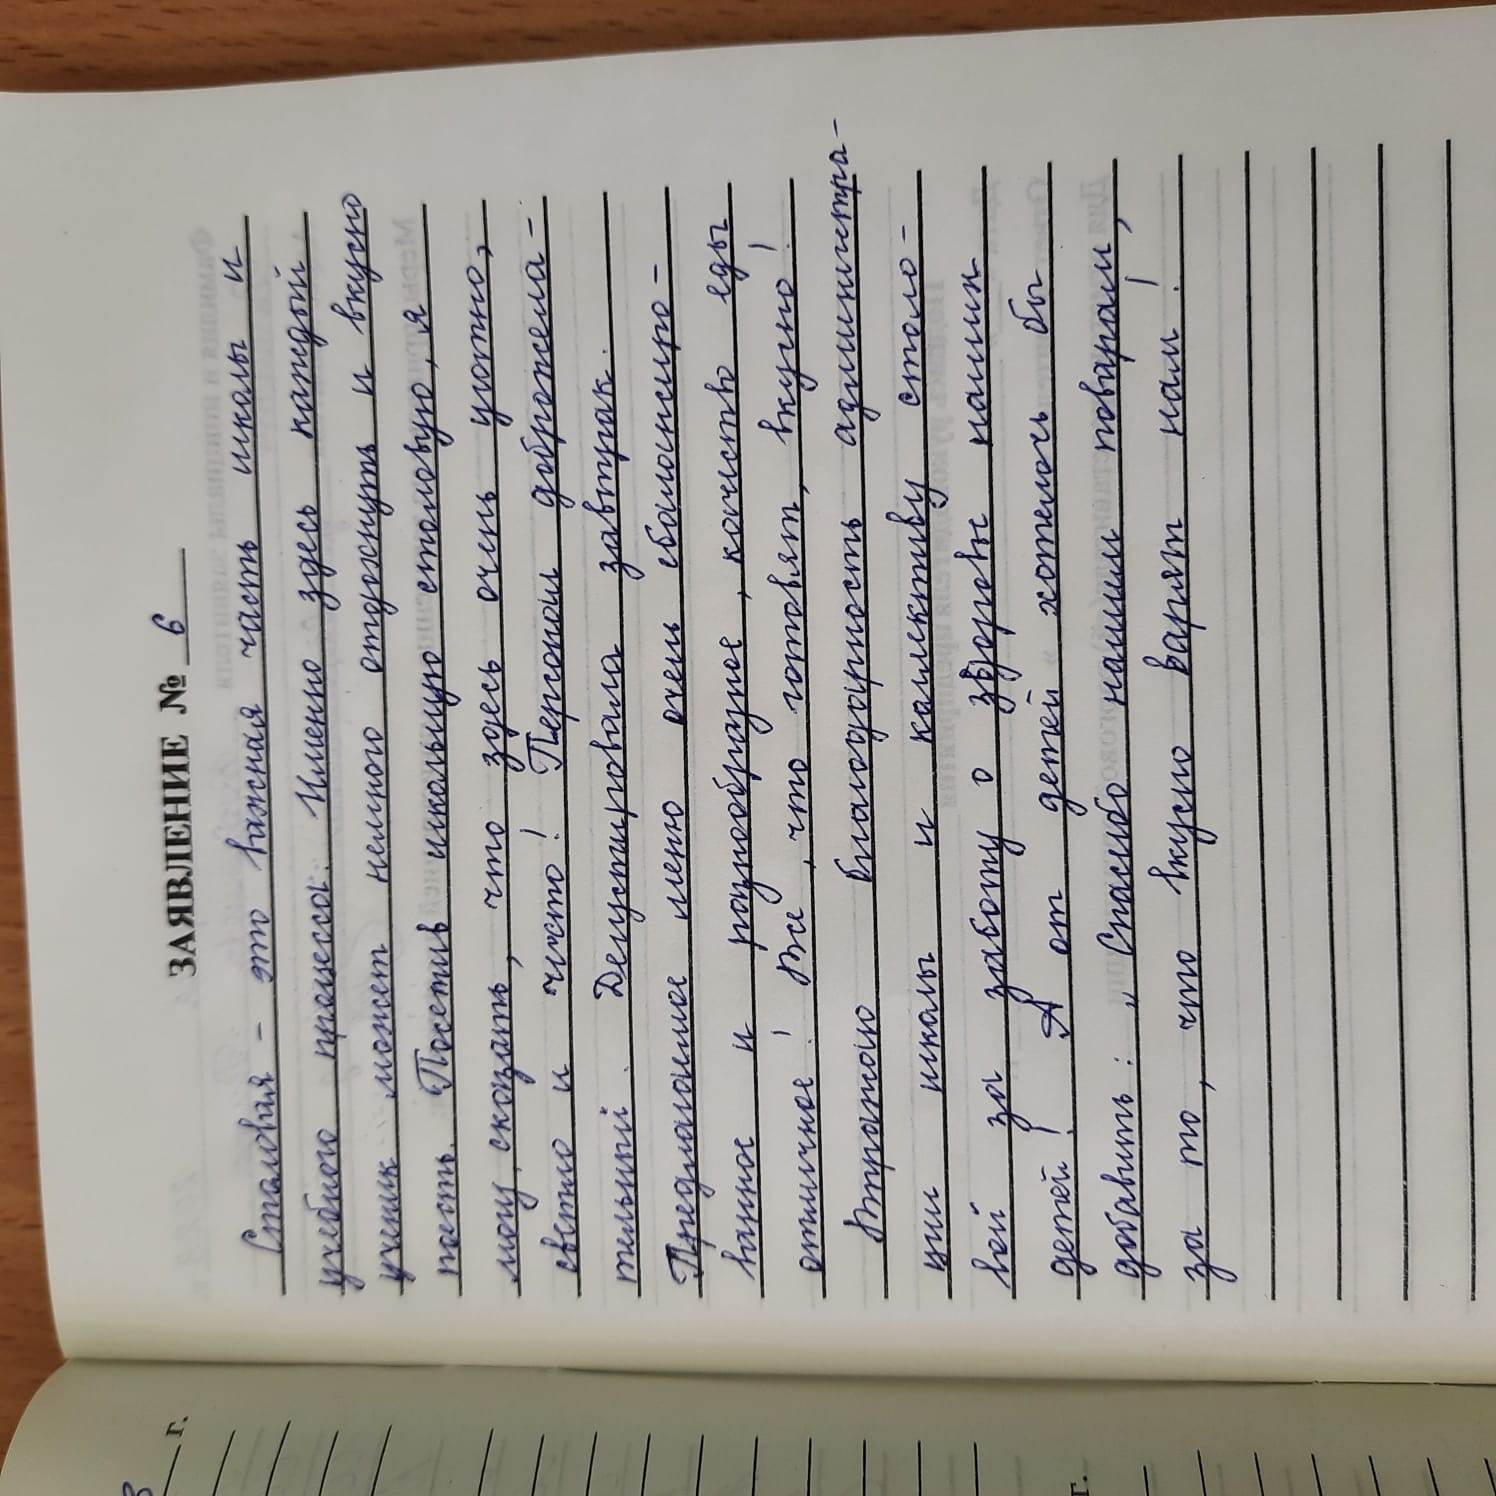 ЗАЯВЛЕНИЕ № 6
Столовая - это важная часть школы и
учебного процесса. Именно здесь каждый
ученик может немного отдохнуть и вкусно
поесть. Посетив школьную столовую, я
могу сказать, что здесь очень уютно,
светло и чисто! Персонал доброжела-
тельный. Дегустировала завтрак.
Предлагаемое меню очень сбалансиро-
ванное и разнообразное, качество еды
отличное! Все, что готовят, вкусно!
Выражаю благодарность администра-
ции школы и коллективу столо-
вой за заботу о здоровье наших
детей! А от детей хотелось бы
добавить: „Спасибо нашим поварам,
за то, что вкусно варят нам!
г.
г.